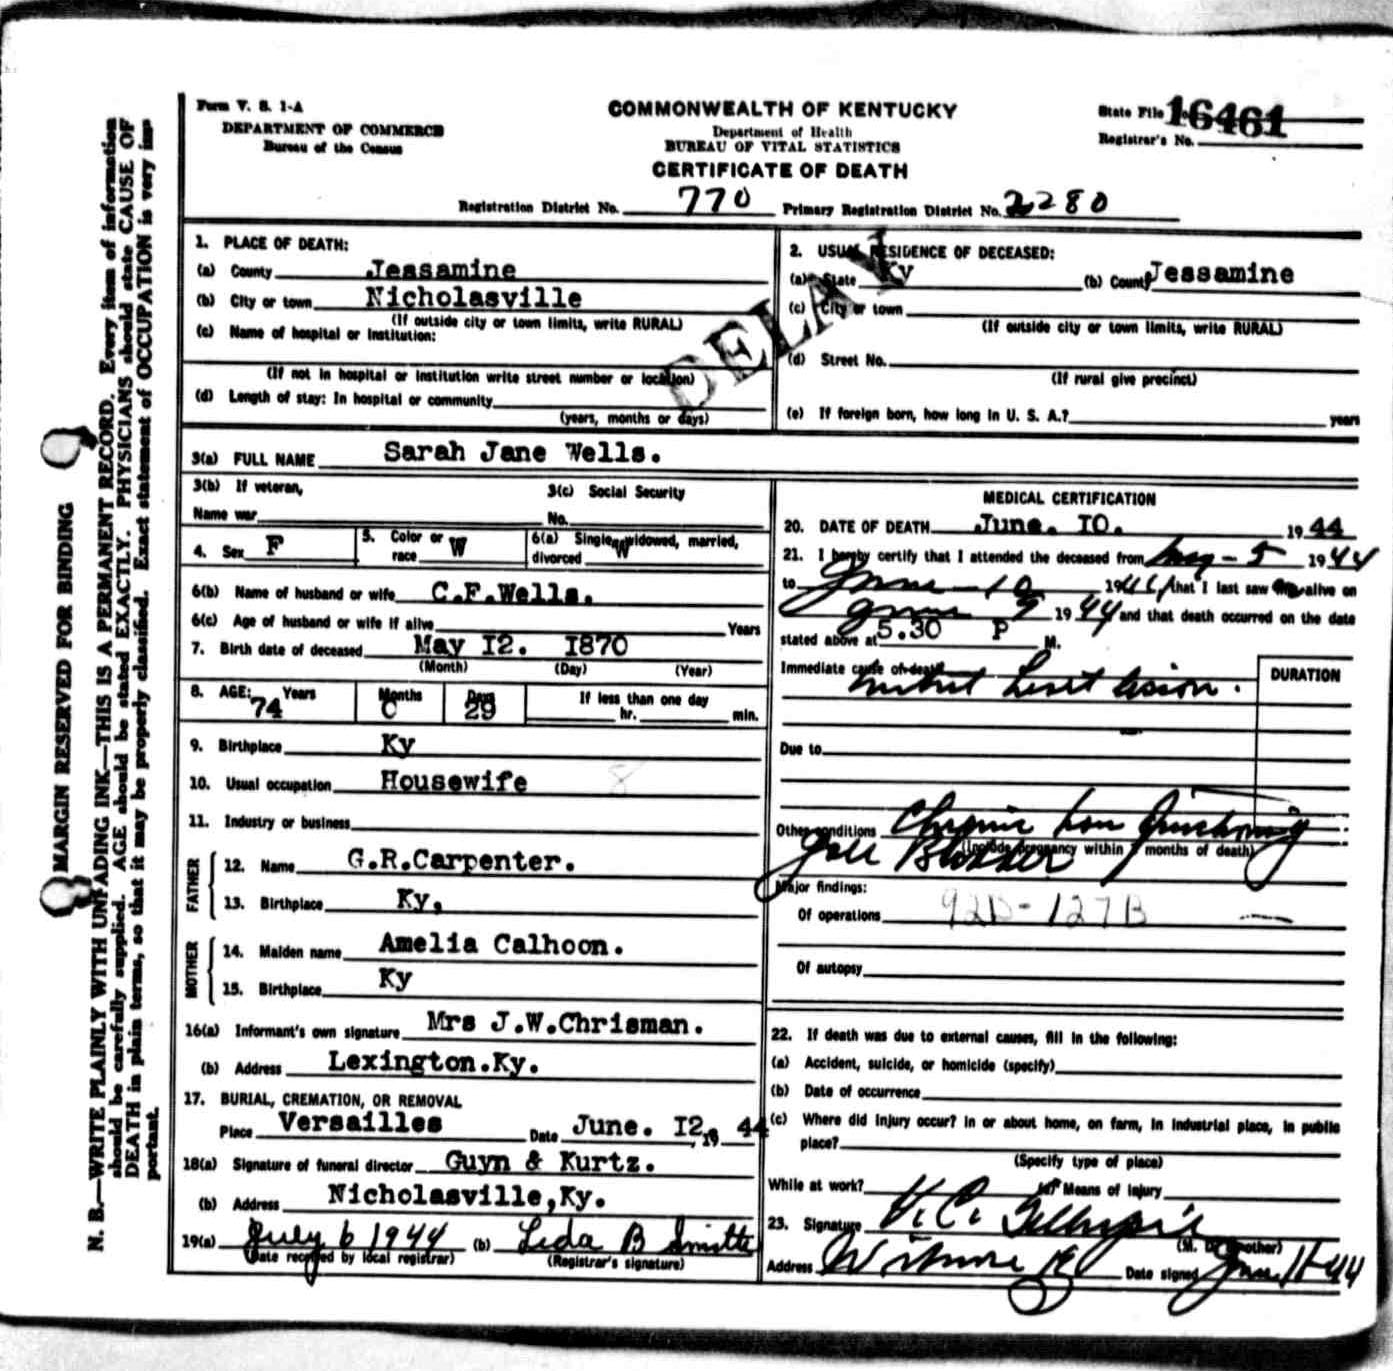 Form V. S. 1-A
DEPARTMENT OF COMMERCE
Bureau of the Census
COMMONWEALTH OF KENTUCKY
Department of Health
BUREAU OF VITAL STATISTICS
CERTIFICATE OF DEATH
State File 16461
Registrar's No.
Registration District No. 770 Primary Registration District No. 2280
DELAY
1. PLACE OF DEATH:
(a) County Jessamine
(b) City or town Nicholasville
(If outside city or town limits, write RURAL)
(c) Name of hospital or institution:
(If not in hospital or institution write street number or location)
(d) Length of stay: In hospital or community
(years, months or days)
2. USUAL RESIDENCE OF DECEASED:
(a) State Ky (b) County Jessamine
(c) City or town
(If outside city or town limits, write RURAL)
(d) Street No.
(If rural give precinct)
(e) If foreign born, how long in U. S. A.? years
3(a) FULL NAME Sarah Jane Wells.
3(b) If veteran,
Name war
3(c) Social Security
No.
4. Sex F
5. Color or race W
6(a) Single, widowed, married, divorced W
6(b) Name of husband or wife C.F.Wells.
6(c) Age of husband or wife if alive Years
7. Birth date of deceased May I2. I870
(Month) (Day) (Year)
8. AGE: Years 74 Months 0 Days 29 If less than one day hr. min.
9. Birthplace Ky
10. Usual occupation Housewife
11. Industry or business
FATHER
12. Name G.R.Carpenter.
13. Birthplace Ky,
MOTHER
14. Maiden name Amelia Calhoon.
15. Birthplace Ky
16(a) Informant's own signature Mrs J.W.Chrisman.
(b) Address Lexington.Ky.
17. BURIAL, CREMATION, OR REMOVAL
Place Versailles Date June. I2, 19 44
18(a) Signature of funeral director Guyn & Kurtz.
(b) Address Nicholasville,Ky.
19(a) July 6 1944 (b) Leda B Smith
(Date received by local registrar) (Registrar's signature)
MEDICAL CERTIFICATION
20. DATE OF DEATH June. IO. 19 44
21. I hereby certify that I attended the deceased from May - 5 1944
to June - 10 1944, that I last saw alive on
June 9 1944 and that death occurred on the date
stated above at 5.30 P M.
Immediate cause of death
DURATION
Due to
Other conditions Chronic
(Include pregnancy within 3 months of death)
Gall Bladder
Major findings:
Of operations 92D-127B
Of autopsy
22. If death was due to external causes, fill in the following:
(a) Accident, suicide, or homicide (specify)
(b) Date of occurrence
(c) Where did injury occur? In or about home, on farm, in industrial place, in public
place?
(Specify type of place)
While at work? Means of injury
23. Signature
(M. D. or other)
Address Wilmore Ky Date signed June 11-44
MARGIN RESERVED FOR BINDING
N. B.—WRITE PLAINLY WITH UNFADING INK—THIS IS A PERMANENT RECORD. Every item of information
should be carefully supplied. AGE should be stated EXACTLY. PHYSICIANS should state CAUSE OF
DEATH in plain terms, so that it may be properly classified. Exact statement of OCCUPATION is very im-
portant.